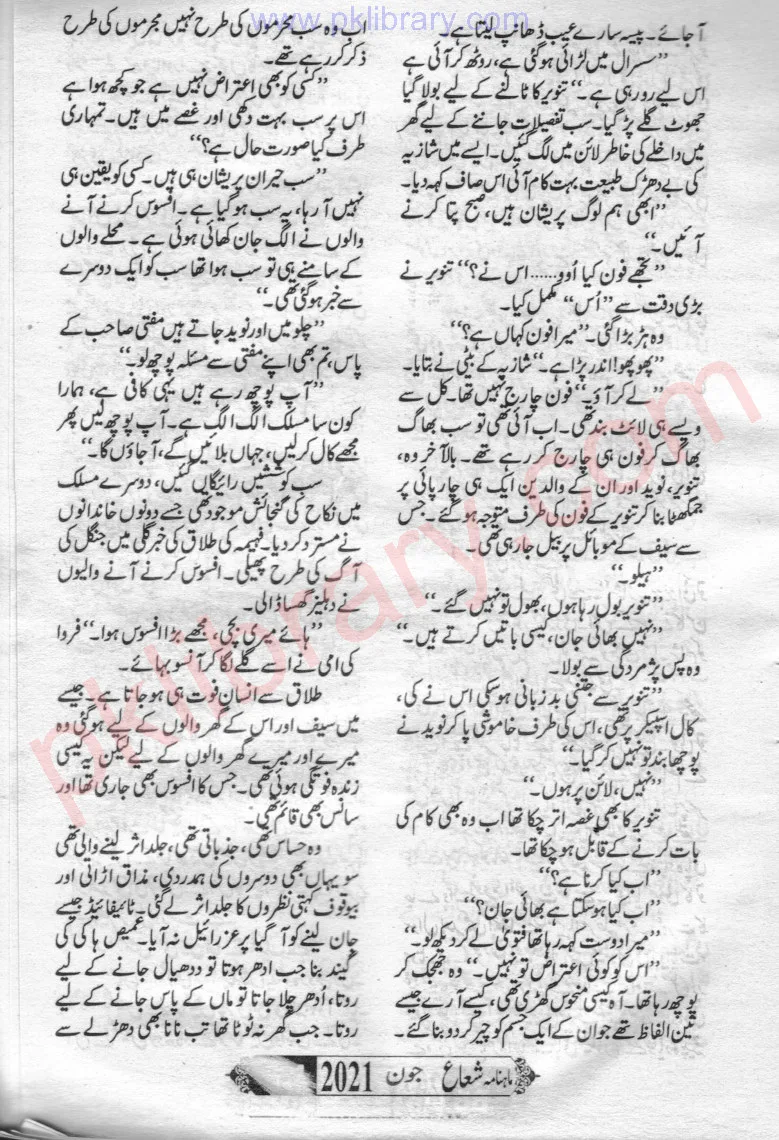 www.pklibrary.com
آ جائے۔ پیسہ سارے عیب ڈھانپ لیتا ہے۔
”سسرال میں لڑائی ہو گئی ہے، روٹھ کر آئی ہے
اس لیے رو رہی ہے۔“ تنویر کا ٹالنے کے لیے بولا گیا
جھوٹ گلے پڑ گیا۔ سب تفصیلات جاننے کے لیے گھر
میں داخلے کی خاطر لائن میں لگ گئیں۔ ایسے میں شازیہ
کی بے دھڑک طبیعت بہت کام آئی اس صاف کہہ دیا۔
”ابھی ہم لوگ پریشان ہیں، صبح پتا کرنے
آئیں۔“
”تجھے فون کیا اُوو...... اس نے؟“ تنویر نے
بڑی دقت سے ”اُس“ مکمل کیا۔
وہ ہڑبڑا گئی۔ ”میرا فون کہاں ہے؟“
”پھوپھو! اندر پڑا ہے۔“ شازیہ کے بیٹی نے بتایا۔
”لے کر آؤ۔“ فون چارج نہیں تھا۔ کل سے
ویسے ہی لائٹ بند تھی۔ اب آئی تھی تو سب بھاگ
بھاگ کر فون ہی چارج کر رہے تھے۔ بالآخر وہ،
تنویر، نوید اور ان کے والدین ایک ہی چارپائی پر
جمگھٹا بنا کر تنویر کے فون کی طرف متوجہ ہو گئے۔ جس
سے سیف کے موبائل پر بیل جا رہی تھی۔
”ہیلو۔“
”تنویر بول رہا ہوں، بھول تو نہیں گئے۔“
”نہیں بھائی جان، کیسی باتیں کرتے ہیں۔“
وہ پس پژمردگی سے بولا۔
”تنویر سے جتنی بد زبانی ہو سکی اس نے کی،
کال اسپیکر پر تھی، اس کی طرف خاموشی پا کر نوید نے
پوچھا بند تو نہیں کر گیا۔“
”نہیں، لائن پر ہوں۔“
تنویر کا بھی غصہ اتر چکا تھا اب وہ بھی کام کی
بات کرنے کے قابل ہو چکا تھا۔
”اب کیا کرنا ہے؟“
”اب کیا ہو سکتا ہے بھائی جان؟“
”میرا دوست کہہ رہا تھا فتویٰ لے کر دیکھ لو۔“
”اس کو کوئی اعتراض تو نہیں۔“ وہ جھجک کر
پوچھ رہا تھا۔ آہ کیسی منحوس گھڑی تھی، کیسے آرے جیسے
تین الفاظ تھے جو ان کے ایک جسم کو چیر کر دو بنا گئے۔
اب وہ سب محرموں کی طرح نہیں مجرموں کی طرح
ذکر کر رہے تھے۔
”کسی کو بھی اعتراض نہیں ہے جو کچھ ہوا ہے
اس پر سب بہت دکھی اور غصے میں ہیں۔ تمہاری
طرف کیا صورت حال ہے؟“
”سب حیران پریشان ہی ہیں۔ کسی کو یقین ہی
نہیں آ رہا، یہ سب ہو گیا ہے۔ افسوس کرنے آنے
والوں نے الگ جان کھائی ہوئی ہے۔ محلے والوں
کے سامنے ہی تو سب ہوا تھا سب کو ایک دوسرے
سے خبر ہو گئی تھی۔“
”چلو میں اور نوید جاتے ہیں مفتی صاحب کے
پاس، تم بھی اپنے مفتی سے مسئلہ پوچھ لو۔“
”آپ پوچھ رہے ہیں یہی کافی ہے، ہمارا
کون سا مسلک الگ الگ ہے۔ آپ پوچھ لیں پھر
مجھے کال کر لیں، جہاں بلائیں گے، آ جاؤں گا۔“
سب کوششیں رائیگاں گئیں، دوسرے مسلک
میں نکاح کی گنجائش موجود تھی جسے دونوں خاندانوں
نے مسترد کر دیا۔ فہیمہ کی طلاق کی خبر گلی میں جنگل کی
آگ کی طرح پھیلی۔ افسوس کرنے آنے والیوں
نے دہلیز گھسا ڈالی۔
”ہائے میری بچی، مجھے بڑا افسوس ہوا۔“ فروا
کی امی نے اسے گلے لگا کر آنسو بہائے۔
طلاق سے انسان فوت ہی ہو جاتا ہے۔ جیسے
میں سیف اور اس کے گھر والوں کے لیے ہو گئی وہ
میرے اور میرے گھر والوں کے لیے لیکن یہ کیسی
زندہ فوتگی ہوئی تھی۔ جس کا افسوس بھی جاری تھا اور
سانس بھی قائم تھی۔
وہ حساس تھی، جذباتی تھی، جلد اثر لینے والی تھی
سو یہاں بھی دوسروں کی ہمدردی، مذاق اڑاتی اور
بیوقوف کہتی نظروں کا جلد اثر لے گئی۔ ٹائیفائیڈ جیسے
جان لینے کو آ گیا پر عزرائیل نہ آیا۔ عمیص ہاکی کی
گیند بنا جب ادھر ہوتا تو ددھیال جانے کے لیے
روتا، اُدھر چلا جاتا تو ماں کے پاس جانے کے لیے
روتا۔ جب گھر نہ ٹوٹا تھا تب نانا بھی دھڑلے سے
ماہنامہ شعاع جون 2021
pklibrary.com